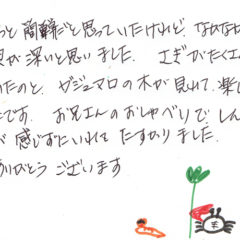 っと 簡単だと思っていたけれど、なかなか
が深いと思いました。 さぎがたくさん
たのと、ガジュマロの木が見れて、楽し
です。 お兄さんのおしゃべりで、しん
が 感じずにいれて たすかりました。
ありがとう ございます